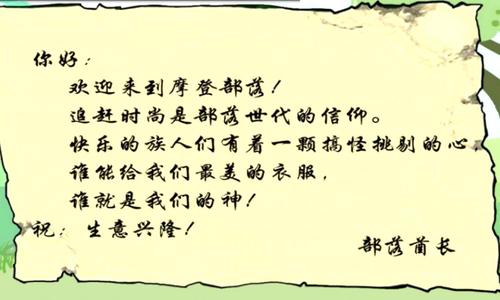 你好：
欢迎来到摩登部落！
追赶时尚是部落世代的信仰。
快乐的族人们有着一颗搞怪挑剔的心，
谁能给我们最美的衣服，
谁就是我们的神！
祝：生意兴隆！
部落酋长